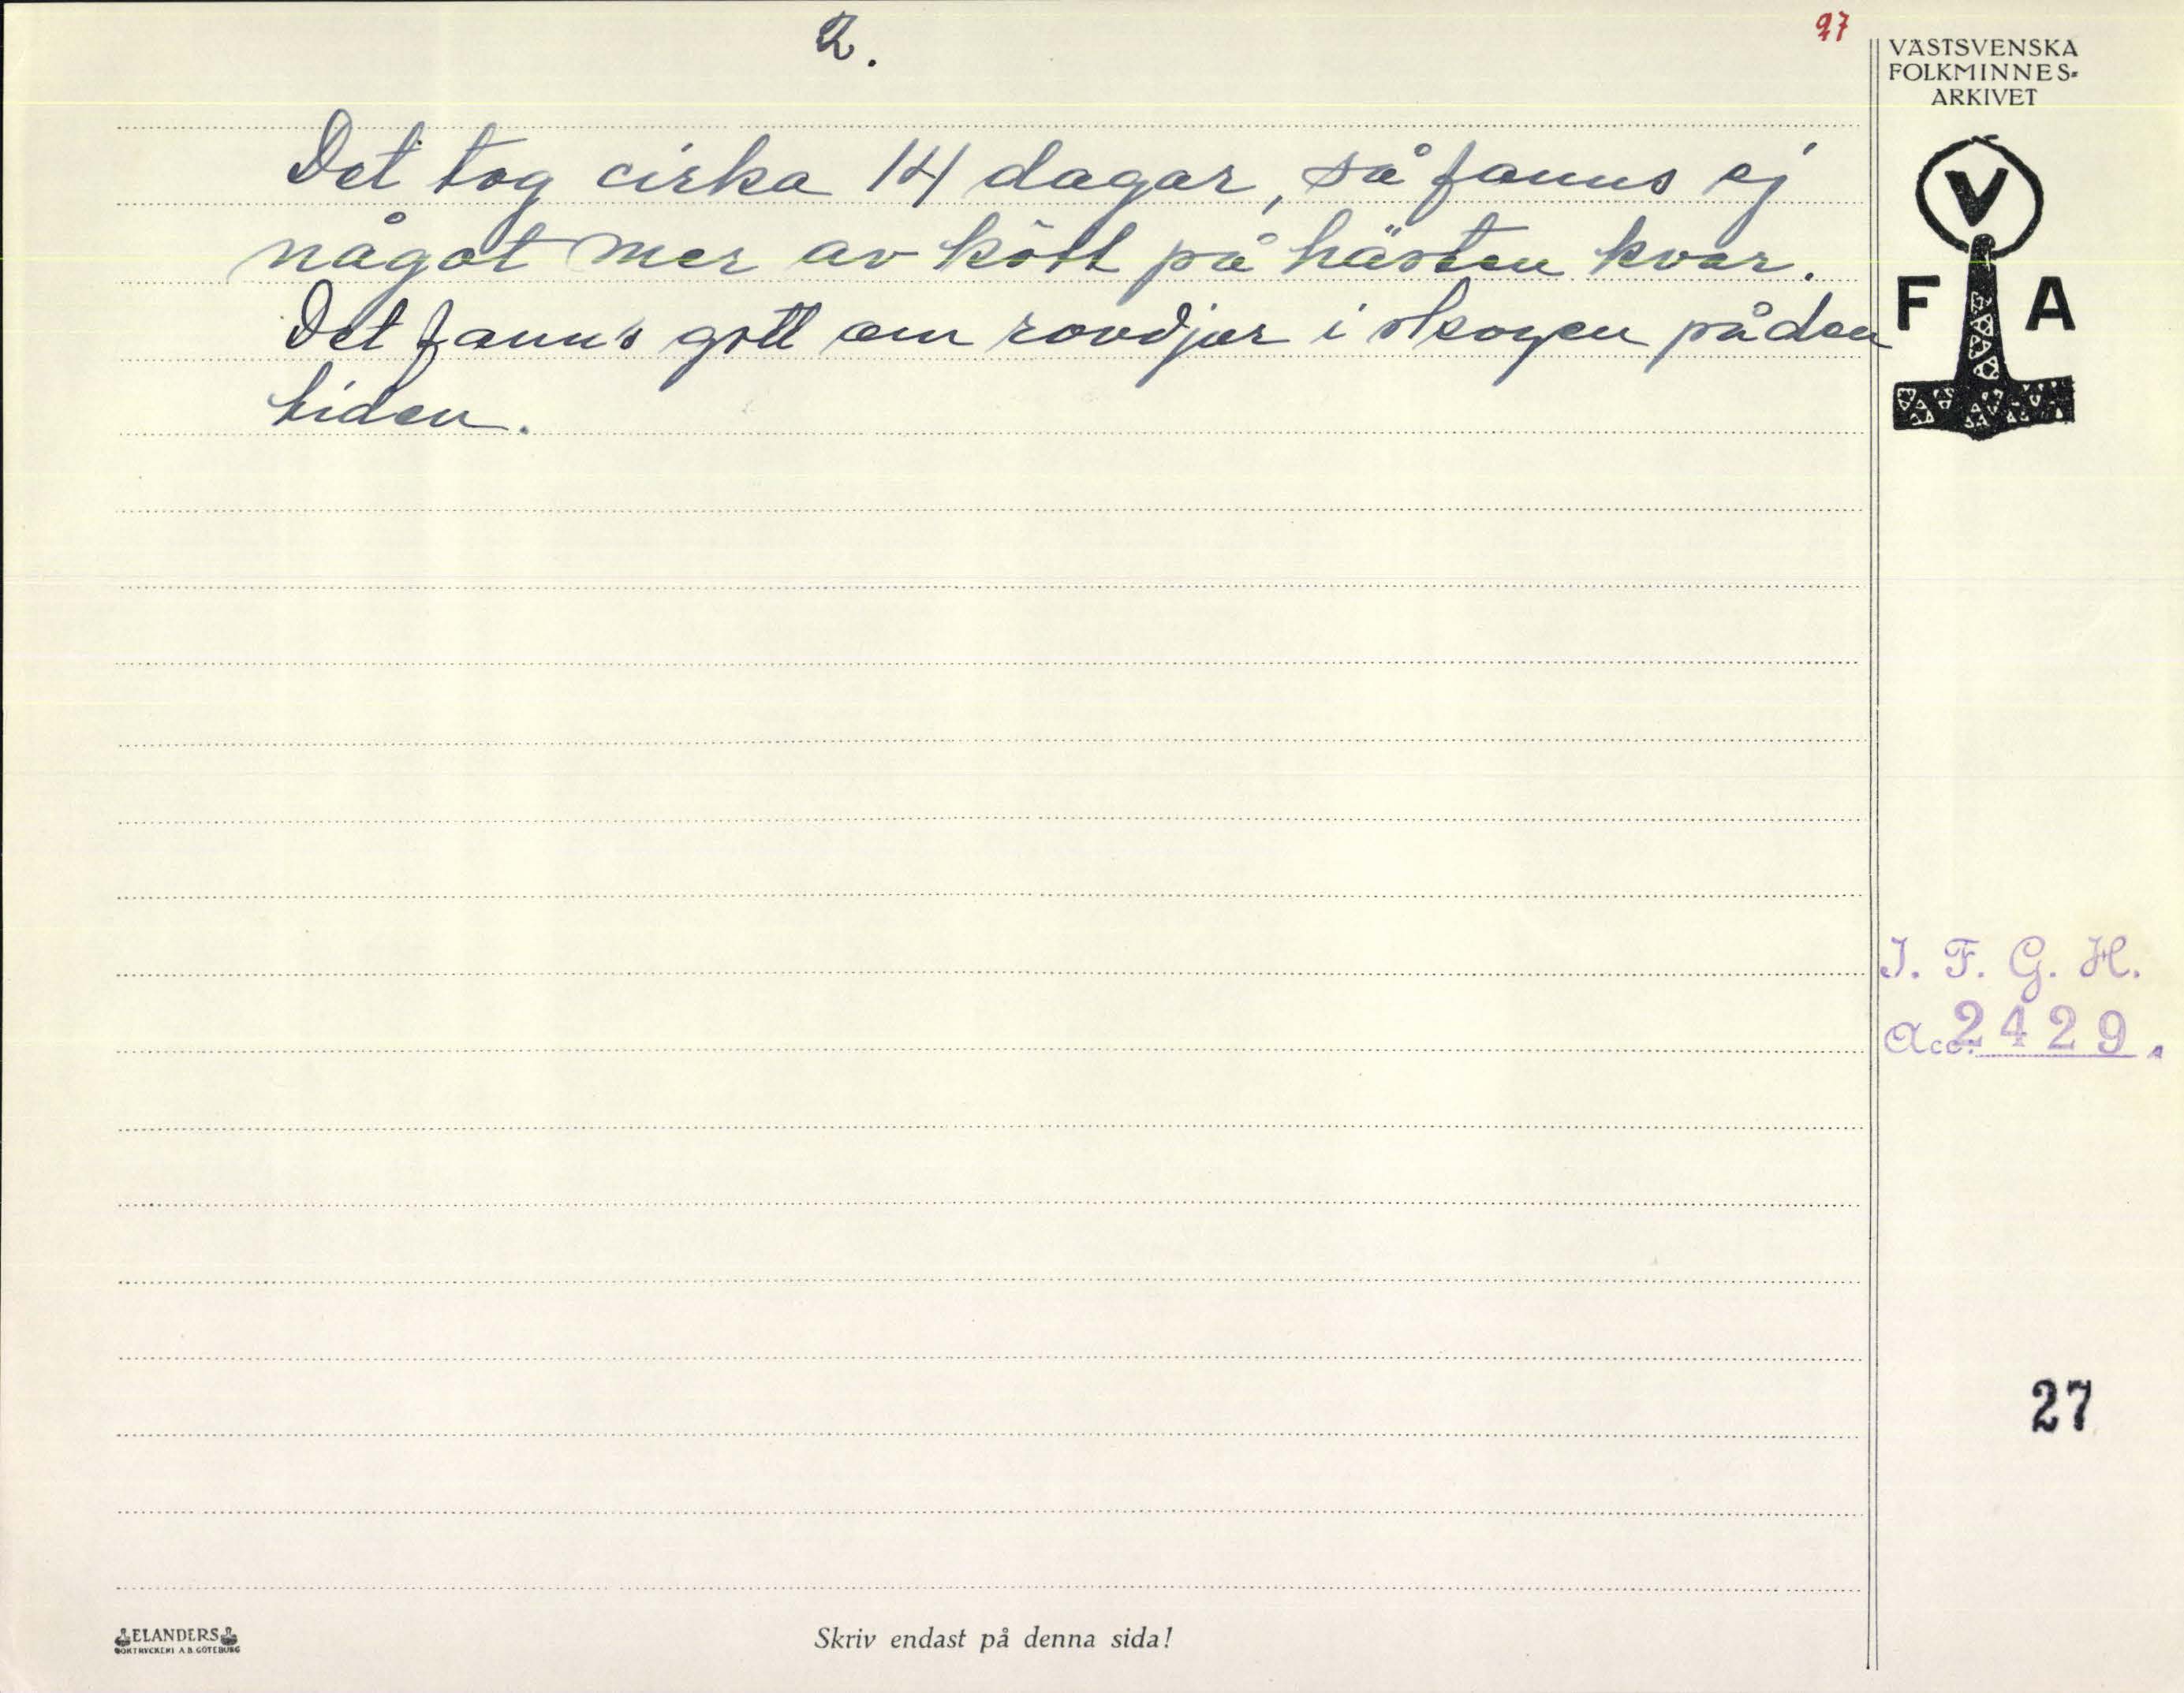 2.
27
VÄSTSVENSKA
FOLKMINNES-
ARKIVET
V
F A
Det tog cirka 14 dagar, så fanns ej
något mer av kött på hästen kvar.
Det fanns gott om rovdjur i skogen på den
tiden.
I. F. G. H.
Acc. 2429.
27
ELANDERS
BOKTRYCKERI A.B. GÖTEBORG
Skriv endast på denna sida!